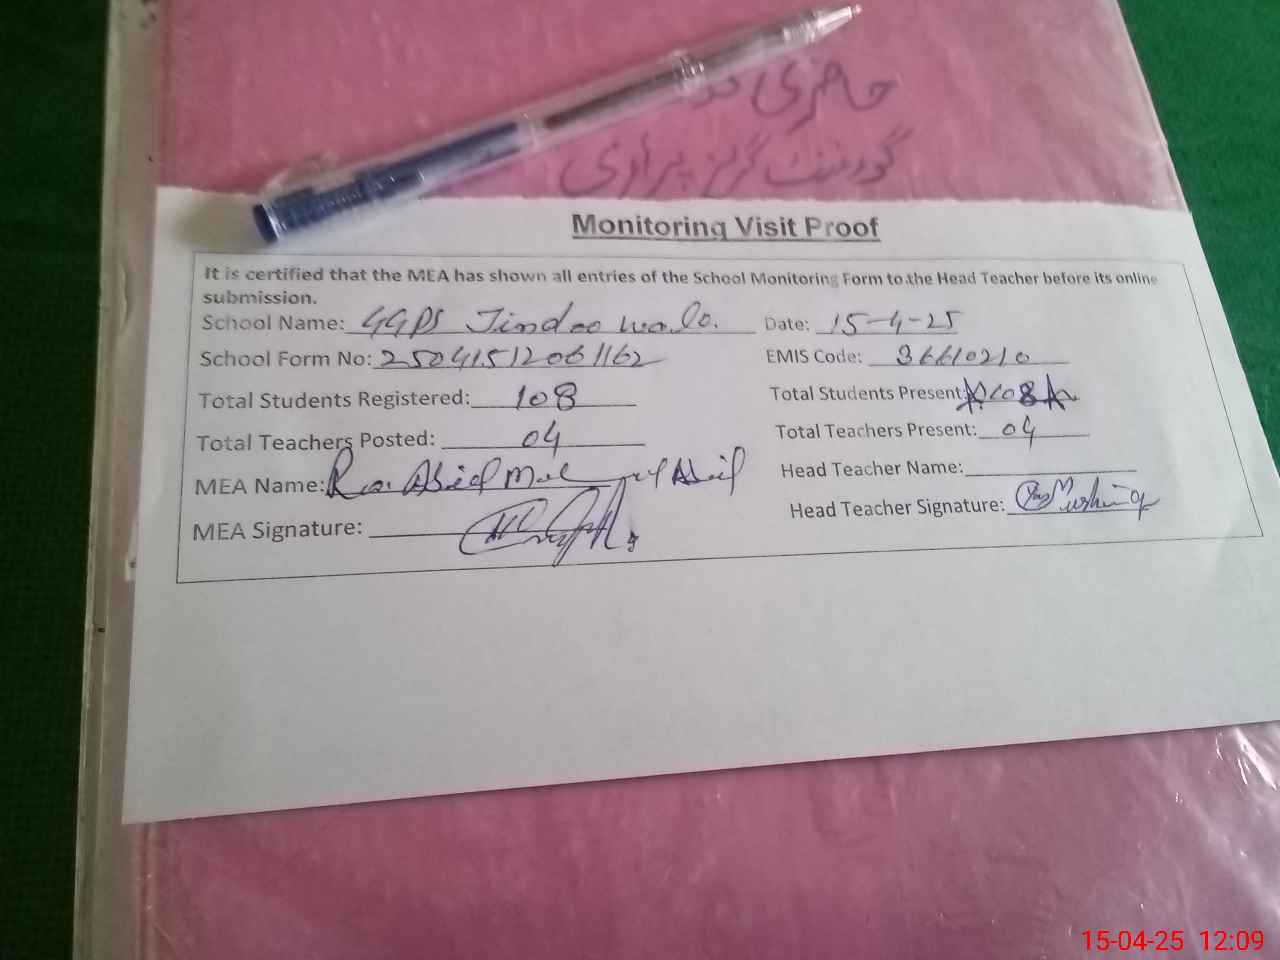 حاضری
گورنمنٹ گرلز پرائمری
Monitoring Visit Proof
It is certified that the MEA has shown all entries of the School Monitoring Form to the Head Teacher before its online
submission.
School Name: GGPS Jindoo wala. Date: 15-4-25
School Form No: 25041512061162 EMIS Code: 36610210
Total Students Registered: 108 Total Students Present: 108
Total Teachers Posted: 04 Total Teachers Present: 04
MEA Name: Abid Head Teacher Name:
MEA Signature: Head Teacher Signature:
15-04-25 12:09